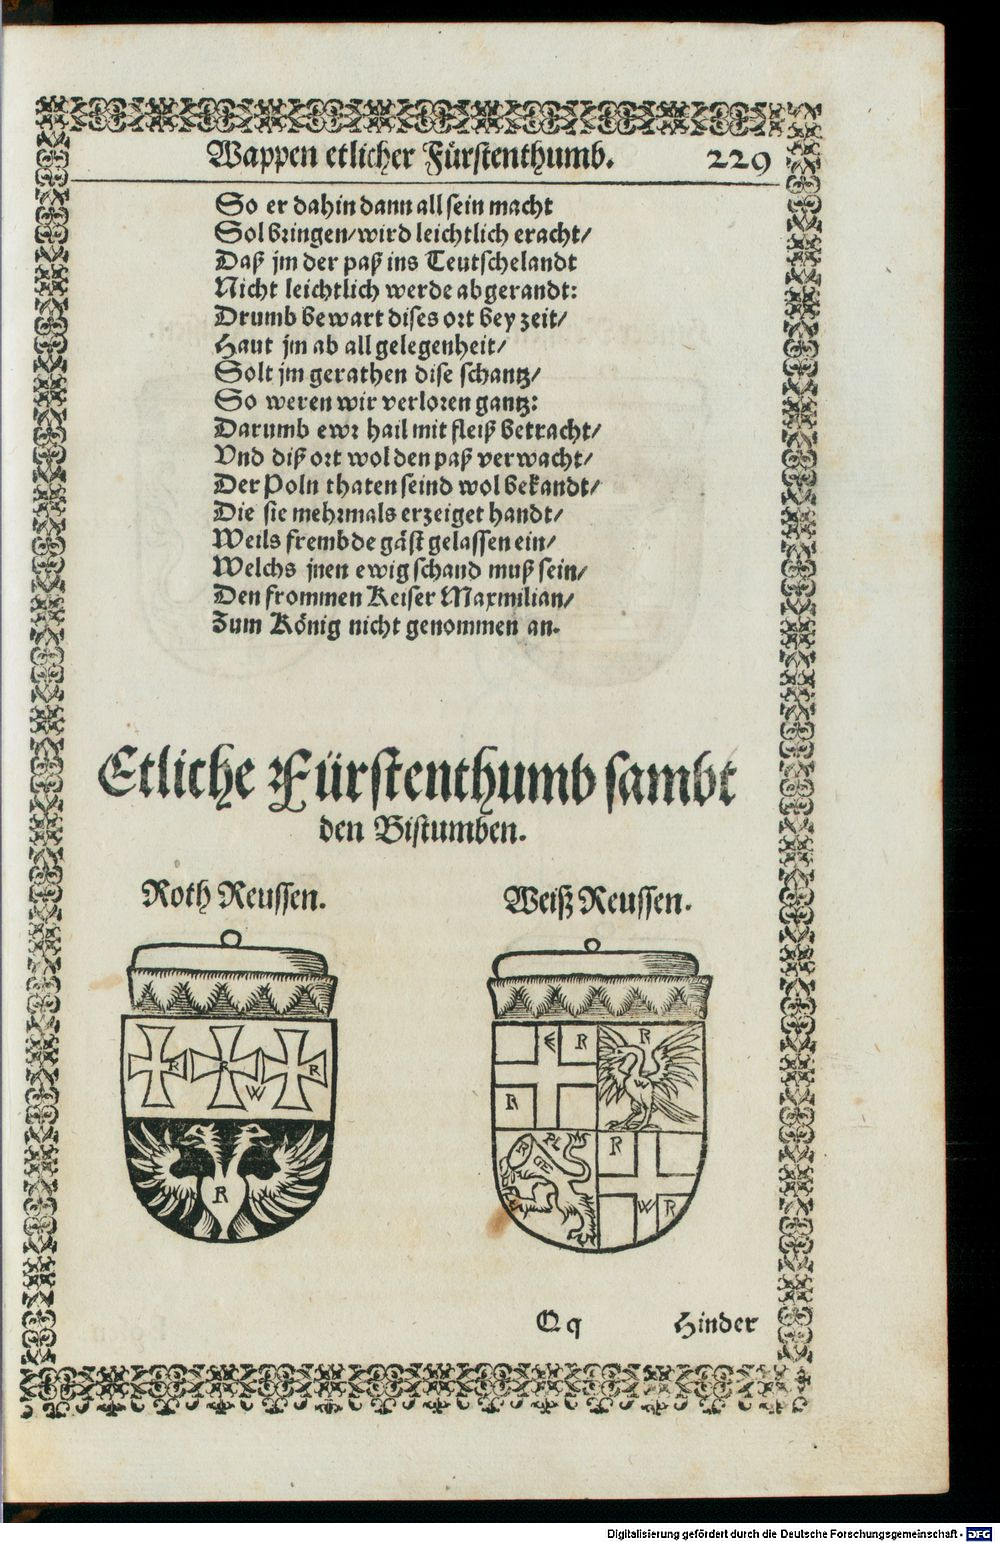 Wappen etlicher Fürstenthumb. 229
So er dahin dann all sein macht
Sol bringen/wird leichtlich eracht/
Daß jm der paß ins Teutschelandt
Nicht leichtlich werde abgerandt:
Drumb bewart dises ort bey zeit/
Haut jm ab all gelegenheit/
Solt jm gerathen dise schantz/
So weren wir verloren gantz:
Darumb ewr hail mit fleiß betracht/
Vnd diß ort wol den paß verwacht/
Der Poln thaten seind wol bekandt/
Die sie mehrmals erzeiget handt/
Weils frembde gäst gelassen ein/
Welchs jnen ewig schand muß sein/
Den frommen Keiser Maxmilian/
Zum König nicht genommen an.
Etliche Fürstenthumb sambt
den Bistumben.
Roth Reussen. Weiß Reussen.
R R R
W
R
E R R
R W
R GE PL R
W R
Qq Hinder
Digitalisierung gefördert durch die Deutsche Forschungsgemeinschaft - DFG